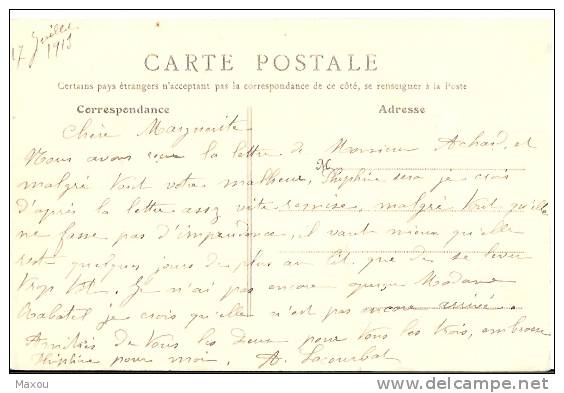 17 Juillet
1915
CARTE POSTALE
Certains pays étrangers n'acceptant pas la correspondance de ce côté, se renseigner à la Poste
Correspondance
Adresse
Chère Marguerite
Nous avons reçu la lettre de Monsieur Achard, et
malgré tout votre malheur, M Thiphine sera je crois
d'après la lettre assez vite remise, malgré tout qu'elle
ne fasse pas d'imprudence, il vaut mieux qu'elle
reste quelques jours de plus au lit que de se lever
trop tôt. Je n'ai pas encore Madame
Rabatel je crois qu'elle n'est pas encore arrivée.
Amitiés de tous les deux pour vous les trois, embrasse
Thiphine pour moi. A.
Maxou
delcampe.net